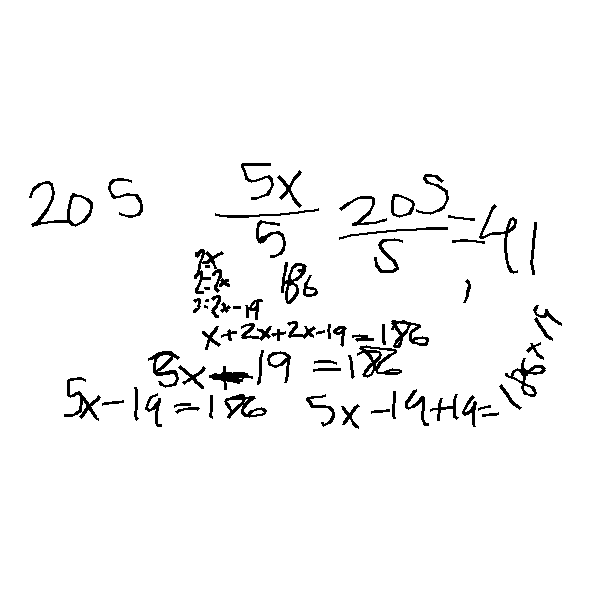 205 5x/5 205/5 = 41
2x
2=2x
186
3=2x-19
x+2x+2x-19=186
5x-19=186
5x-19=186 5x-19+19=186+19